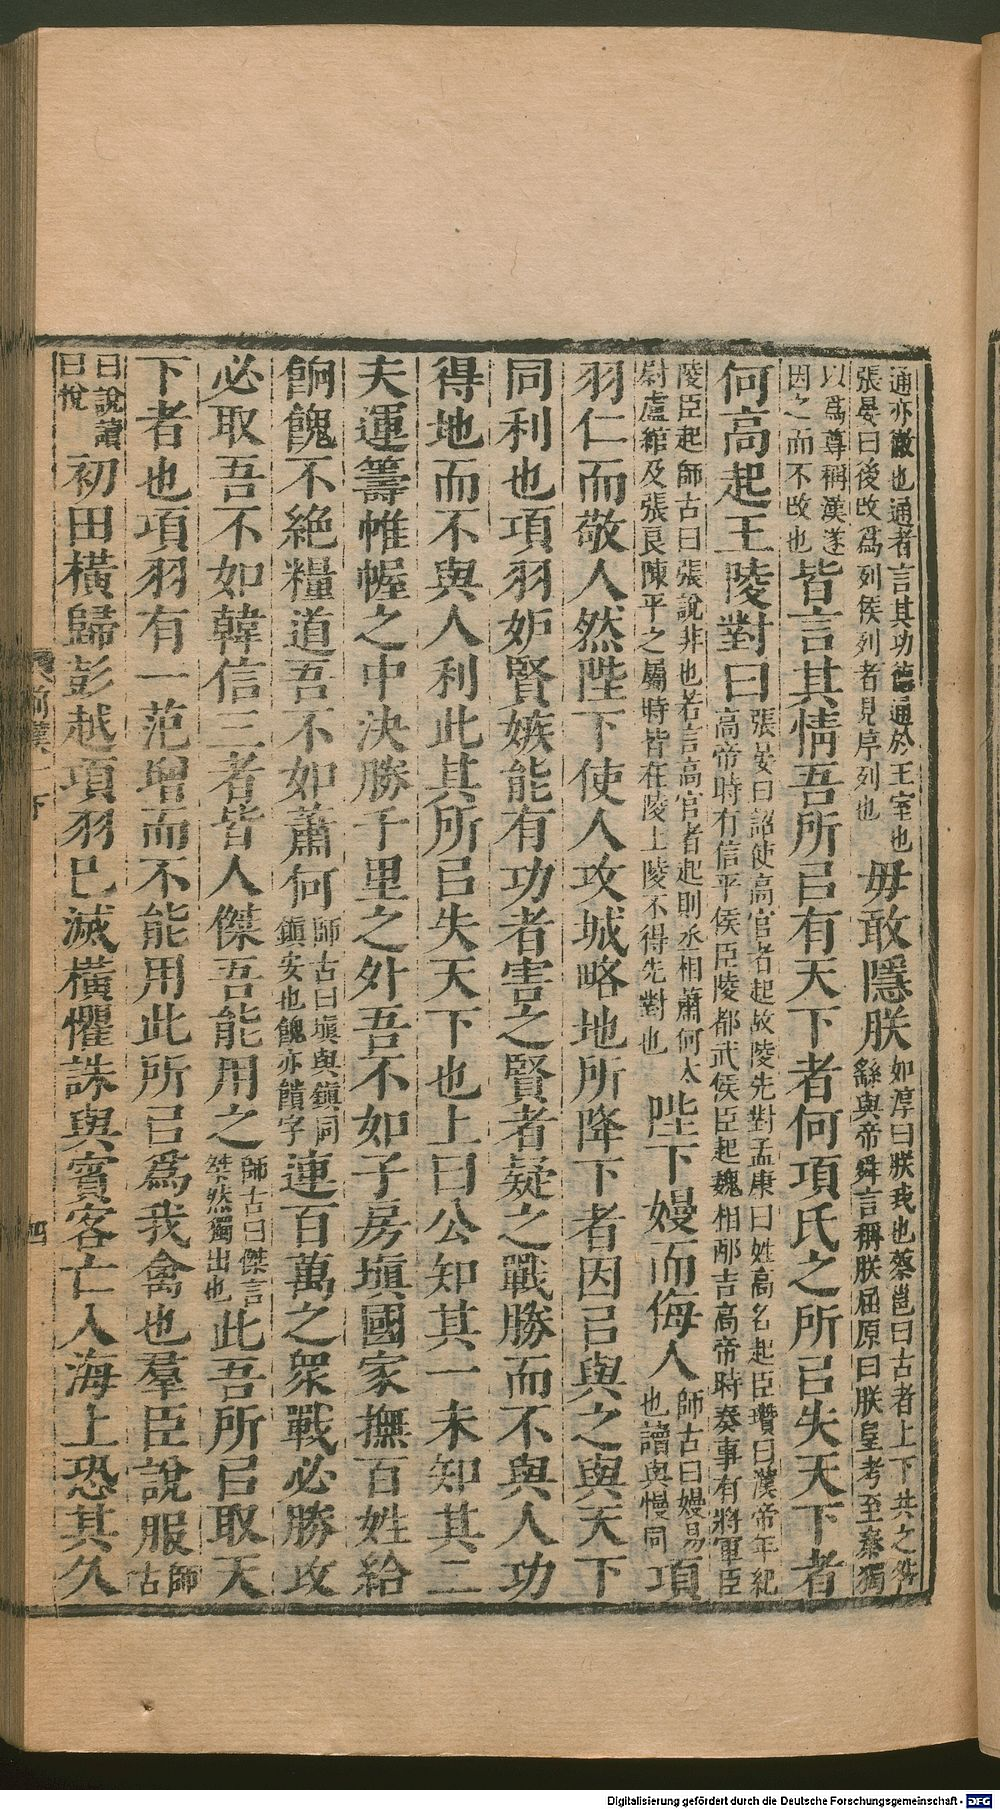 通亦徹也通者言其功德通於王室也
張晏曰後改爲列侯列者見序列也
毋敢隱朕
如淳曰朕我也蔡邕曰古者上下共之咎
繇與帝舜言稱朕屈原曰朕皇考至秦獨
以爲尊稱漢遂
因之而不改也
皆言其情吾所㠯有天下者何項氏之所㠯失天下者
何高起王陵對曰
張晏曰詔使高官者起故陵先對孟康曰姓高名起臣瓚曰漢帝年紀
高帝時有信平侯臣陵都武侯臣起魏相邴吉高帝時奏事有將軍臣
陵臣起師古曰張說非也若言高官者起則丞相蕭何太
尉盧綰及張良陳平之屬時皆在陵上陵不得先對也
陛下嫚而侮人
師古曰嫚易
也讀與慢同
項
羽仁而敬人然陛下使人攻城略地所降下者因㠯與之與天下
同利也項羽妒賢嫉能有功者害之賢者疑之戰勝而不與人功
得地而不與人利此其所㠯失天下也上曰公知其一未知其二
夫運籌帷幄之中決勝千里之外吾不如子房塡國家撫百姓給
餉餽不絕糧道吾不如蕭何
師古曰塡與鎭同
鎭安也餽亦饋字
連百萬之衆戰必勝攻
必取吾不如韓信三者皆人傑吾能用之
師古曰傑言
桀然獨出也
此吾所㠯取天
下者也項羽有一范增而不能用此所㠯爲我禽也羣臣說服
師
古
曰說讀
曰悅
初田橫歸彭越項羽已滅橫懼誅與賓客亡入海上恐其久
前漢一下
四
Digitalisierung gefördert durch die Deutsche Forschungsgemeinschaft - DFG